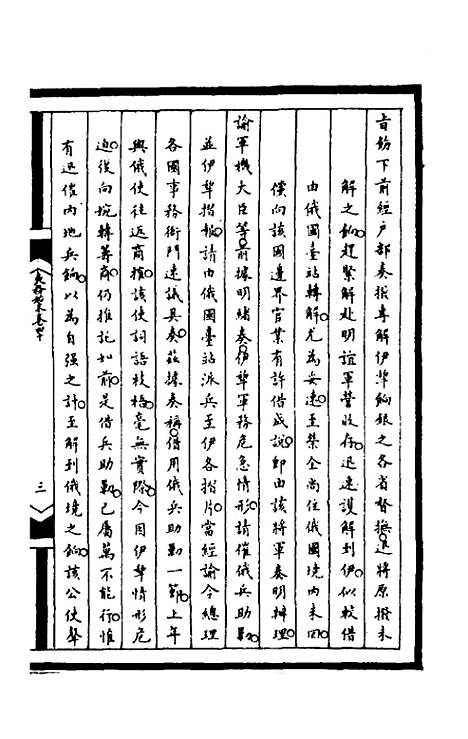 旨飭下前經戶部奏撥專解伊犂餉銀之各省督撫迅將原撥未
解之餉趕緊解赴明誼軍營收存迅速護解到伊似較借
由俄國臺站轉解尤為妥速至榮全尚住俄國境內未回
僅向該國邊界官業有許借成說卽由該將軍奏明辦理
諭軍機大臣等前據明緒奏伊犂軍務危急情形請催俄兵助勦
並伊犂摺報請由俄國臺站派兵至伊各摺片當經諭令總理
各國事務衙門速議具奏茲據奏稱借用俄兵助勦一節上年
與俄使往返商搉該使詞語枝梧毫無實際今因伊犂情形危
迫復向婉轉籌商仍推託如前是借兵助勦已屬萬不能行惟
有迅催內地兵餉以為自强之計至解到俄境之餉該公使聲
夷務始末卷四十
三